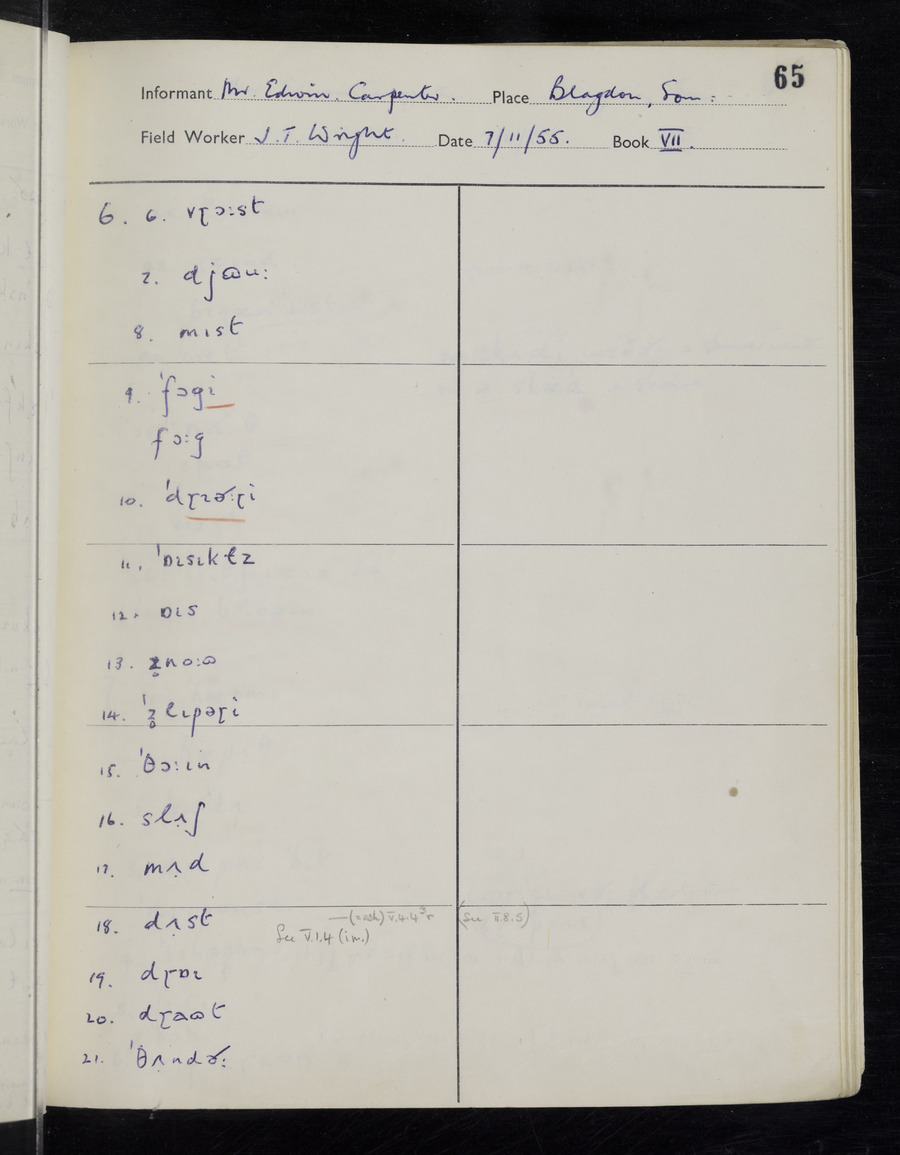 65
Informant Mr. Edwin Carpenter. Place Blagdon, Som:
Field Worker J. T. Wright. Date 7/11/55. Book VII.
6. 6. vɽɔ:st
7. djɷu:
8. mɪst
9. 'fɔgi
fɔ:g
10. 'dɽɪɚ:ɽi
11. 'ɒɪsɪkɫz
12. ɒɪs
13. z̥no:ɷ
14. 'z̥lɪpəɽi
15. 'θɔ:ɪn
16. slʌ̣ʃ
17. mʌ̣d
18. dʌ̣st —(=ash) V.4.4³r (See II.8.5)
See V.1.4 (i.m.)
19. dɽɒɪ
20. dɽaɷt
21. 'θʌ̣ndɚ: